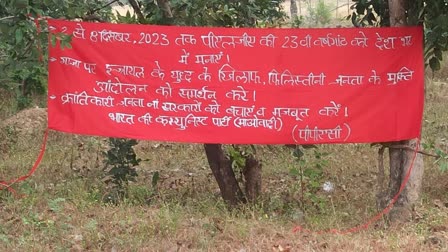 - 2 से 8 दिसंबर, 2023 तक पीएलजीए की 23वी वर्षगांठ को देश भर
में मनाएं।
- गाजा पर इजरायल के युद्ध के खिलाफ, फिलिस्तीनी जनता के मुक्ति
आंदोलन को समर्थन करे।
- क्रांतिकारी जनता ना सरकारों को बचाएं व मजबूत करें।
भारत की कम्युनिस्ट पार्टी (माओवादी)
(पीपीएससी)